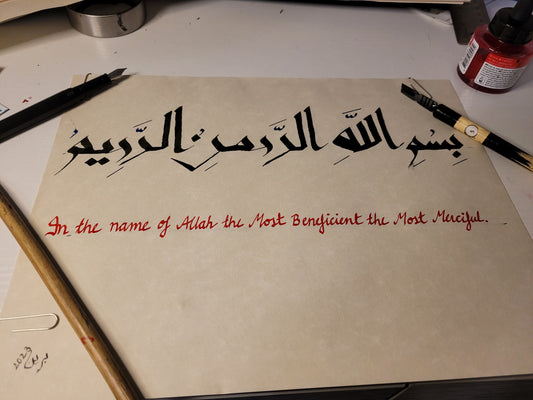 بِسْمِ اللَّهِ الرَّحمنِ الرَّحِيمِ
In the name of Allah the Most Beneficient the Most Merciful.
2023